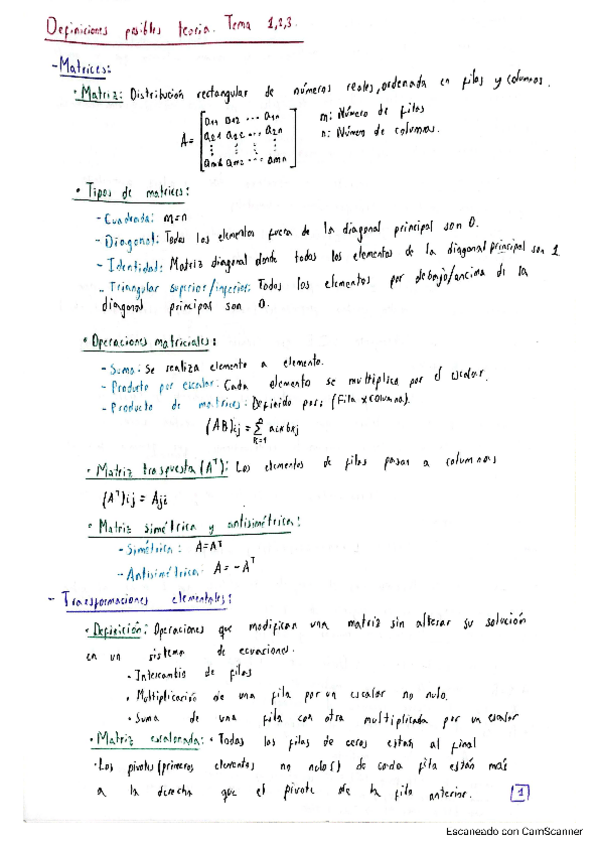 Definiciones posibles teoría. Tema 1,2,3.
- Matrices:
• Matriz: Distribución rectangular de números reales, ordenada en filas y columnas.
A = [a11 a12 ... a1n m: Número de filas
a21 a22 ... a2n n: Número de columnas.
⋮ ⋮ ⋮ ⋮
am1 am2 ... amn]
• Tipos de matrices:
- Cuadrada: m=n
- Diagonal: Todos los elementos fuera de la diagonal principal son 0.
- Identidad: Matriz diagonal donde todos los elementos de la diagonal principal son 1
- Triangular superior/inferior: Todos los elementos por debajo/encima de la
diagonal principal son 0.
• Operaciones matriciales:
- Suma: Se realiza elemento a elemento.
- Producto por escalar: Cada elemento se multiplica por el escalar.
- Producto de matrices: Definido por: (Fila x columna).
(AB)ij = Σ k=1 n aik bkj
• Matriz traspuesta (Aᵀ): Los elementos de filas pasan a columnas
(Aᵀ)ij = Aji
• Matriz simétrica y antisimétrica:
- Simétrica: A=Aᵀ
- Antisimétrica: A = -Aᵀ
- Transformaciones elementales:
• Definición: Operaciones que modifican una matriz sin alterar su solución
en un sistema de ecuaciones.
• Intercambio de filas
• Multiplicación de una fila por un escalar no nulo.
• Suma de una fila con otra multiplicada por un escalar
• Matriz escalonada: • Todas las filas de ceros están al final
• Los pivotes (primeros elementos no nulos) de cada fila están más
a la derecha que el pivote de la fila anterior. 1
Escaneado con CamScanner